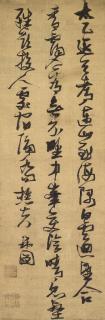 太乙近天都連山到海隅白雲迴望合
青靄入看無分野中峰變陰晴衆壑
殊欲投人處宿隔水問樵夫